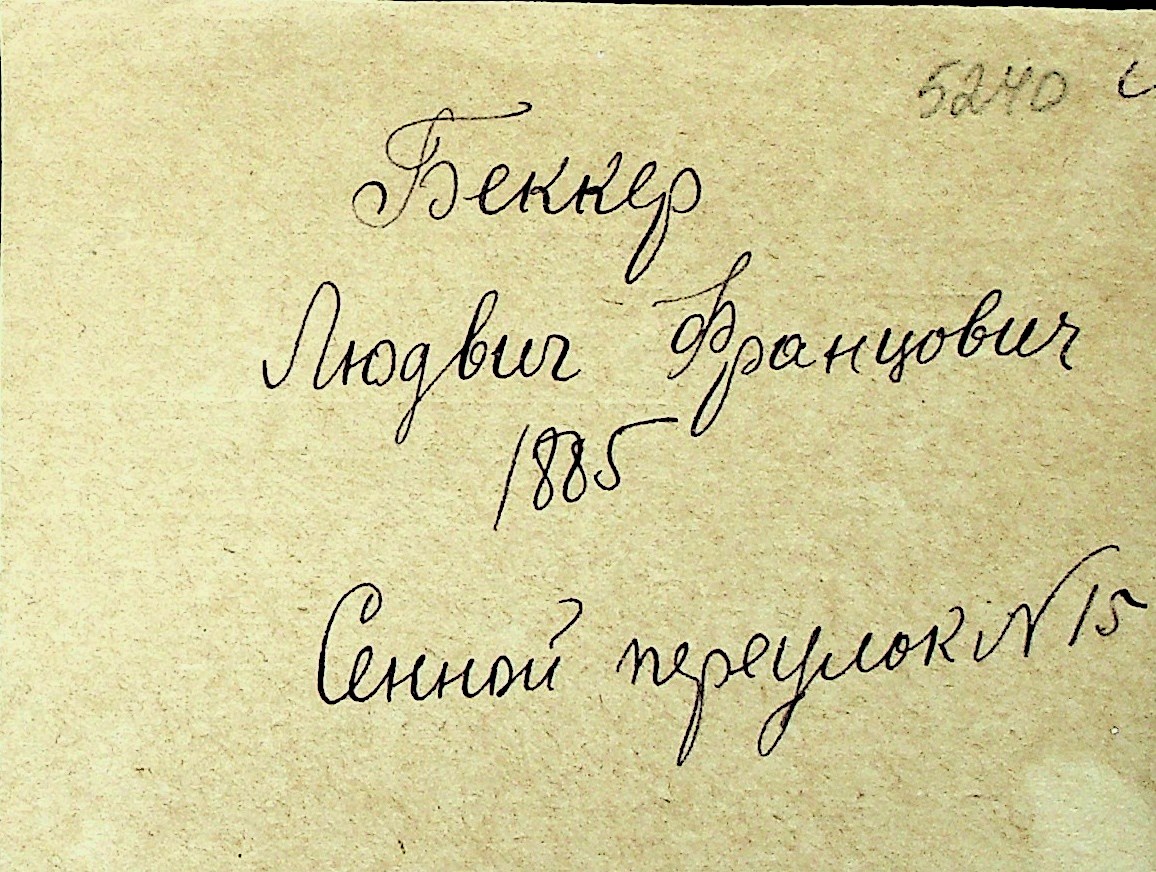 5240
Беккер
Людвиг Францович
1885
Сенной переулок N 15